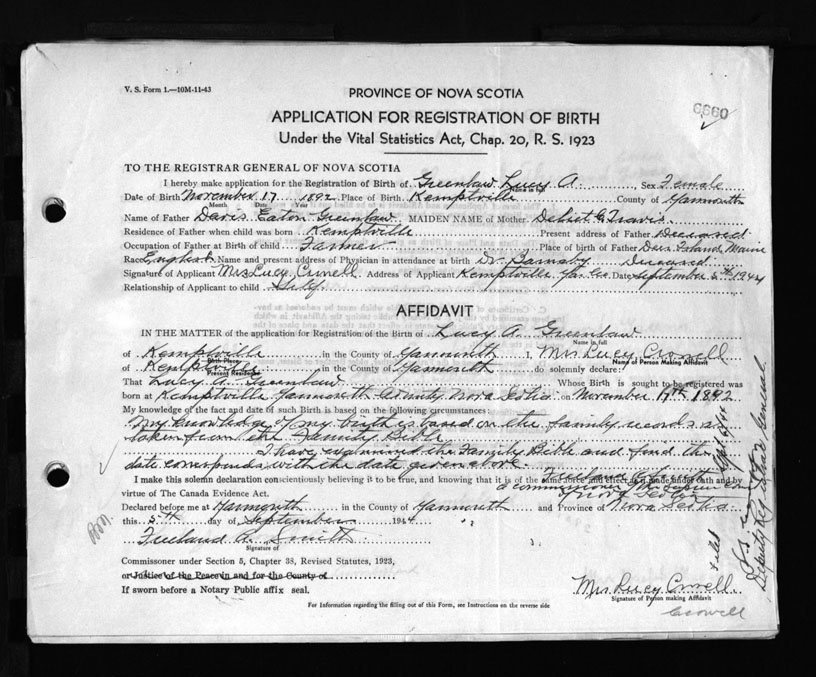 V. S. Form 1.—10M-11-43
PROVINCE OF NOVA SCOTIA
6660
APPLICATION FOR REGISTRATION OF BIRTH
Under the Vital Statistics Act, Chap. 20, R. S. 1923
TO THE REGISTRAR GENERAL OF NOVA SCOTIA
I hereby make application for the Registration of Birth of Greenlaw Lucy A. Sex Female
Name in full
Date of Birth November 17 1892 Place of Birth Kemptville County of Yarmouth
Month Date Year
Name of Father Davis Eaton Greenlaw MAIDEN NAME of Mother G. Travis
Residence of Father when child was born Kemptville Present address of Father Deceased
Occupation of Father at Birth of child Farmer Place of birth of Father Deer Island, Maine
Race English Name and present address of Physician in attendance at birth Dr. Barnaby Deceased
Signature of Applicant Mrs Lucy Crowell Address of Applicant Kemptville Yar. Co. Date September 5th 1944
Relationship of Applicant to child Self
AFFIDAVIT
IN THE MATTER of the application for Registration of the Birth of Lucy A. Greenlaw
Name in full
of Kemptville in the County of Yarmouth I, Mrs Lucy Crowell
Birth Place Name of Person making Affidavit
of Kemptville in the County of Yarmouth do solemnly declare:
Present Residence
That Lucy A Greenlaw Whose Birth is sought to be registered was
born at Kemptville Yarmouth County Nova Scotia on November 17th 1892
My knowledge of the fact and date of such Birth is based on the following circumstances:
My knowledge of my birth is based on the family records as
taken from the Family Bible
I have examined the Family Bible and find the
date corresponds with the date given above.
Freeland A. Smith
I make this solemn declaration conscientiously believing it to be true, and knowing that it is of the same force and effect as if made under oath and by
a commissioner of the Supreme Court
virtue of The Canada Evidence Act.
of Nova Scotia
Declared before me at Yarmouth in the County of Yarmouth and Province of Nova Scotia
this 5th day of September 1944
Freeland A. Smith
Signature of
Commissioner under Section 5, Chapter 38, Revised Statutes, 1923,
or Justice of the Peace in and for the County of
If sworn before a Notary Public affix seal.
Mrs Lucy Crowell
Signature of Person making Affidavit
Crowell
For Information regarding the filling out of this Form, see Instructions on the reverse side
Filed Sept 1944
Deputy Registrar General